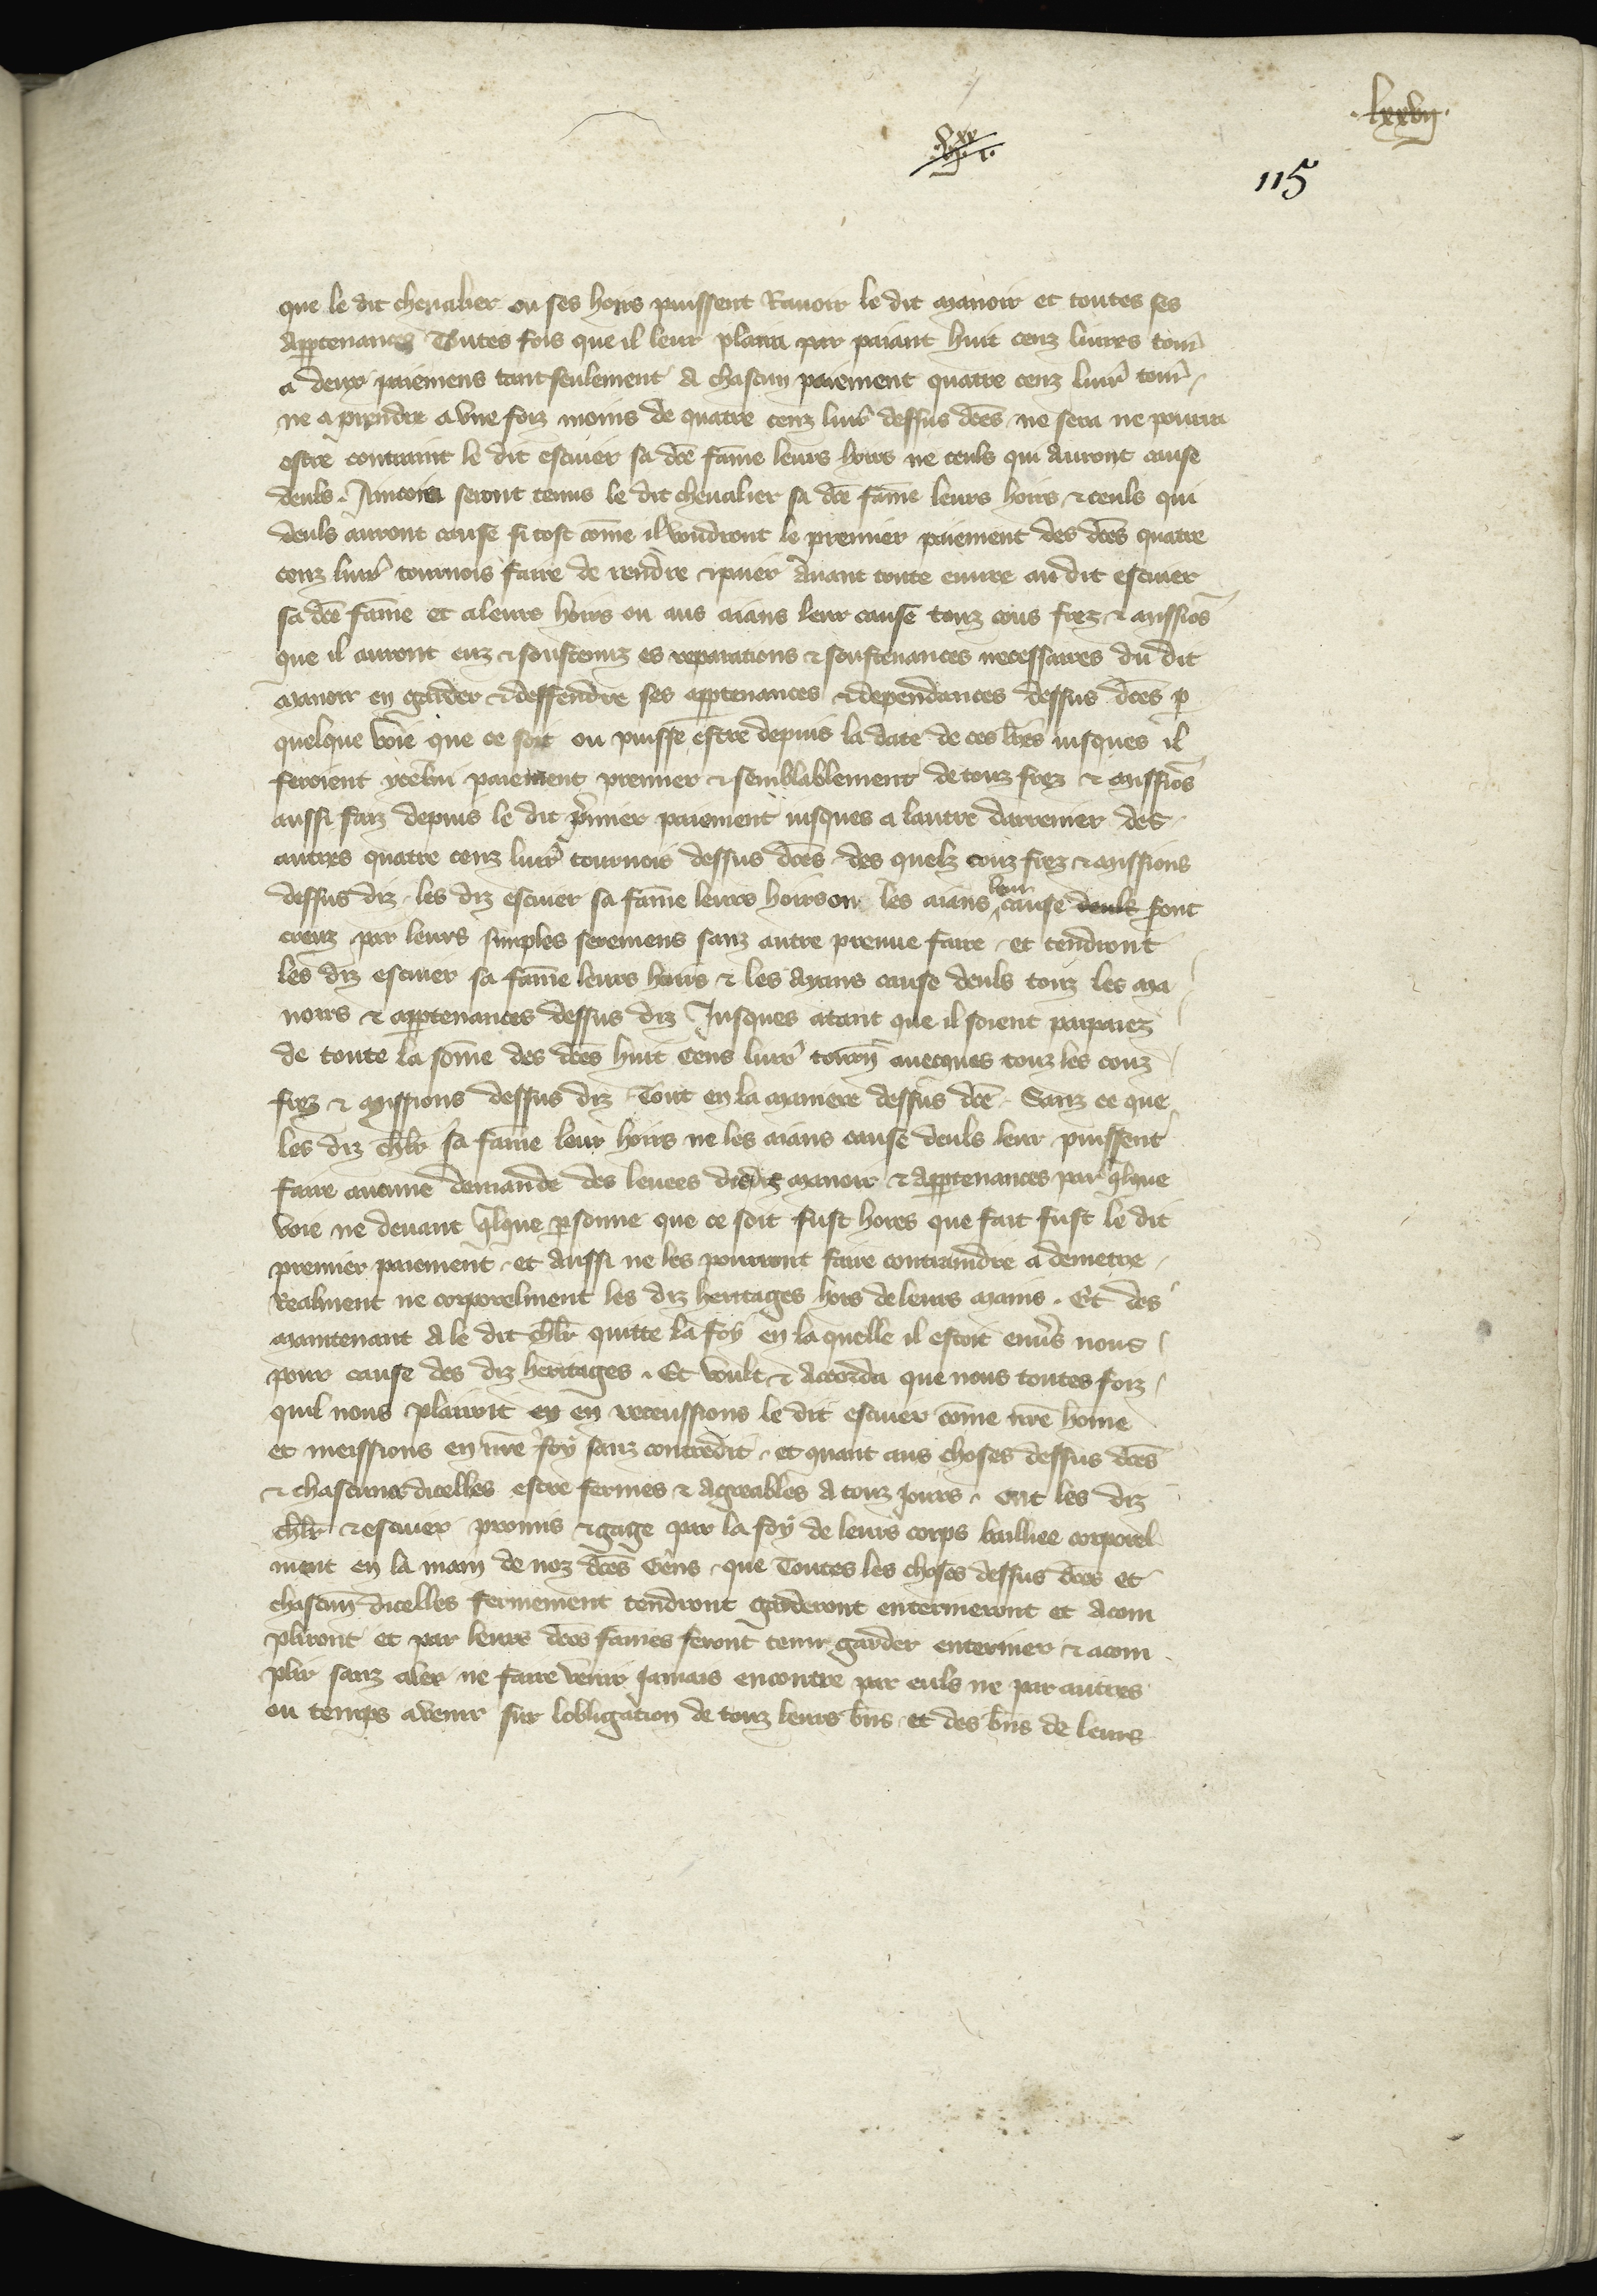 .lxxvii.
115
que le dit chevalier ou ses hoirs puissent Ravoir le dit manoir et toutes ses
appartenances Toutes fois que il leur plaira par paiant huit cenz livres tour̃
a deux paiemens tant seulement a chascun paiement quatre cenz livr̃ tour̃
ne a prendre a une foiz moins de quatre cenz livr̃ dessus dc̃es ne sera ne pourra
estre contraint le dit escuier sa dc̃e fãme leurs hoirs ne ceuls qui auront cause
deuls. Aincois seront tenus le dit chevalier sa dc̃e fãme leurs hoirs & ceuls qui
deuls auront cause si tost cõme il voudront le premier paiement des dc̃es quatre
cenz livr̃ tournois faire de rendre & paier avant toute euvre au dit escuier
sa dc̃e fãme et a leurs hoirs ou aus aians leur cause touz cous frez & missiõs
que il auront euz & soustenuz es reparations & soustenances necessaires du dit
manoir en garder & deffendre ses appartenances & dependances dessus dc̃es p
quelque voie que ce soit ou puisse estre depuis la date de ces lr̃es iusques il
feroient ycelui paiement premier & semblablement de touz frez & missiõs
aussi faiz depuis le dit p̃mier paiement iusques a lautre darrenier des
autres quatre cenz livr̃ tournois dessus dc̃es des quelz couz frez & missions
dessus diz les diz escuier sa fãme leurs hoirs ou les aians leur cause deuls sont
creuz par leurs simples seremens sanz autre preuve faire et tendront
les diz escuier sa fãme leurs hoirs & les ayans cause deuls touz les ma
noirs & appartenances dessus diz Jusques atant que il soient parpaiez
de toute la sõme des dc̃es huit cens livr̃ tourñ avecques touz les couz
frez & missions dessus diz Tout en la maniere dessus dc̃e Sanz ce que
les diz chlr̃ sa fãme leur hoirs ne les aians cause deuls leur puissent
faire aucune demande des levees desdiz manoir & appartenances par q̃lque
voie ne devant q̃lque p̃sonne que ce soit fust hores que fait fust le dit
premier paiement et aussi ne les pourront faire contraindre a demetre
Realment ne corporelment les diz heritages hors de leurs mains. Et des
maintenant a le dit chlr̃ quitte la foy en la quelle il estoit env̾s nous
pour cause des diz heritages. Et voult & accorda que nous toutes foiz
quil nous plairoit en en receussions le dit escuier cõme nr̃e home
et meissions en nr̃e foy sanz contredit. et quant aus choses dessus dc̃es
& chascune dicelles estre fermes & agreables a touz jours. ont les diz
chlr̃ & escuier promis & gage par la foy de leurs corps baillee corporel
ment en la main de noz dc̃es Gens. que Toutes les choses dessus dc̃es et
chascuñ dicelles fermement tendront garderont enterineront et acom
pliront et par leurs dc̃es fames feront tenir garder enteriner & acom
plir sanz aler ne faire venir Jamais encontre par euls ne par autres
ou temps avenir sur lobligation de touz leurs biñs et des biñs de leurs